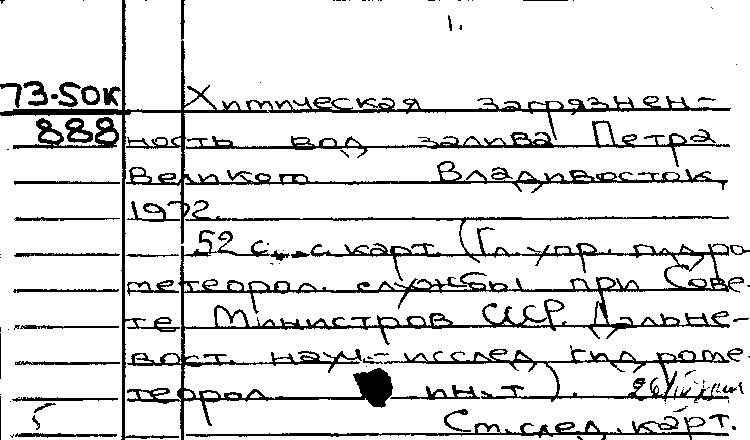 1.
73-50к Химическая загрязнен-
888 ность вод залива Петра
Великого Владивосток,
1972.
52 с. с карт. (Гл. упр. гидро
метеорол. службы при Сове-
те Министров СССР. Дальне-
вост. науч.-исслед. гидроме-
теорол. ин-т).
Ст. след. карт.